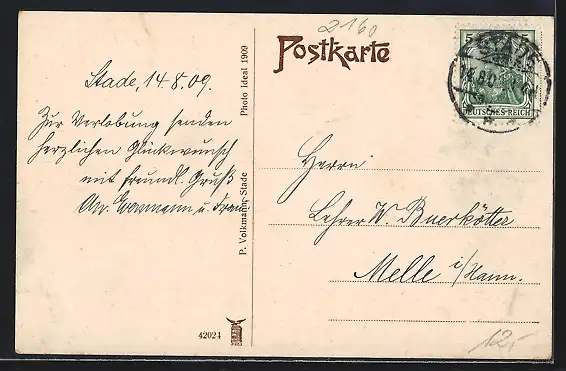 2160
Postkarte
5 5
STADE
DEUTSCHES REICH
Stade, 14.8.09.
Zur Verlobung senden
herzlichen Glückwunsch
mit freundl. Gruß
u. Frau
P. Volkmann, Stade
Photo Ideal 1909
Herrn
Lehrer W. Buerkötter
Melle i/Hann.
42024
12,-